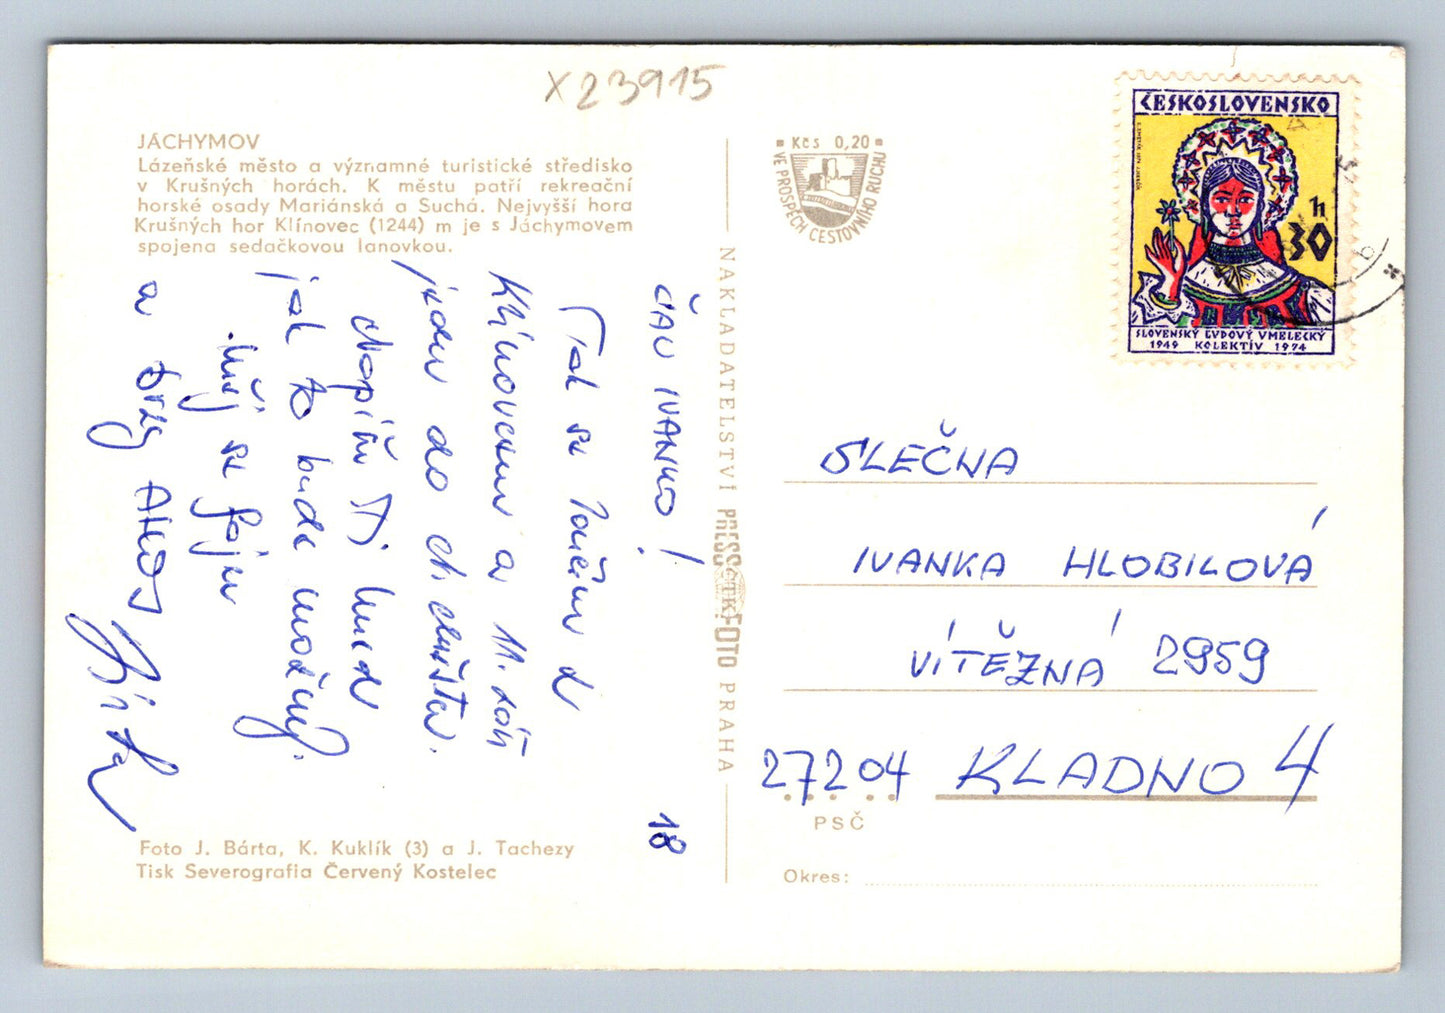 X23915
JÁCHYMOV
Lázeňské město a význámné turistické středisko
v Krušných horách. K městu patří rekreační
horské osady Mariánská a Suchá. Nejvyšší hora
Krušných hor Klínovec (1244) m je s Jáchymovem
spojena sedačkovou lanovkou.
ČAU IVANKO!
Tak se loučím s
Klínovcem a 11. září
jedu do
Napíši Ti hned
jak to bude možný.
Měj se fajn
a brzy AHOJ
18
Foto J. Bárta, K. Kuklík (3) a J. Tachezy
Tisk Severografia Červený Kostelec
NAKLADATELSTVÍ PRESSFOTO PRAHA
ČTK
Kčs 0,20
VE PROSPĚCH CESTOVNÍHO RUCHU
ČESKOSLOVENSKO
30 h
SLOVENSKÝ ĽUDOVÝ UMELECKÝ
1949 KOLEKTÍV 1974
SLEČNA
IVANKA HLOBILOVÁ
VÍTĚZNÁ 2959
27204 KLADNO 4
PSČ
Okres: